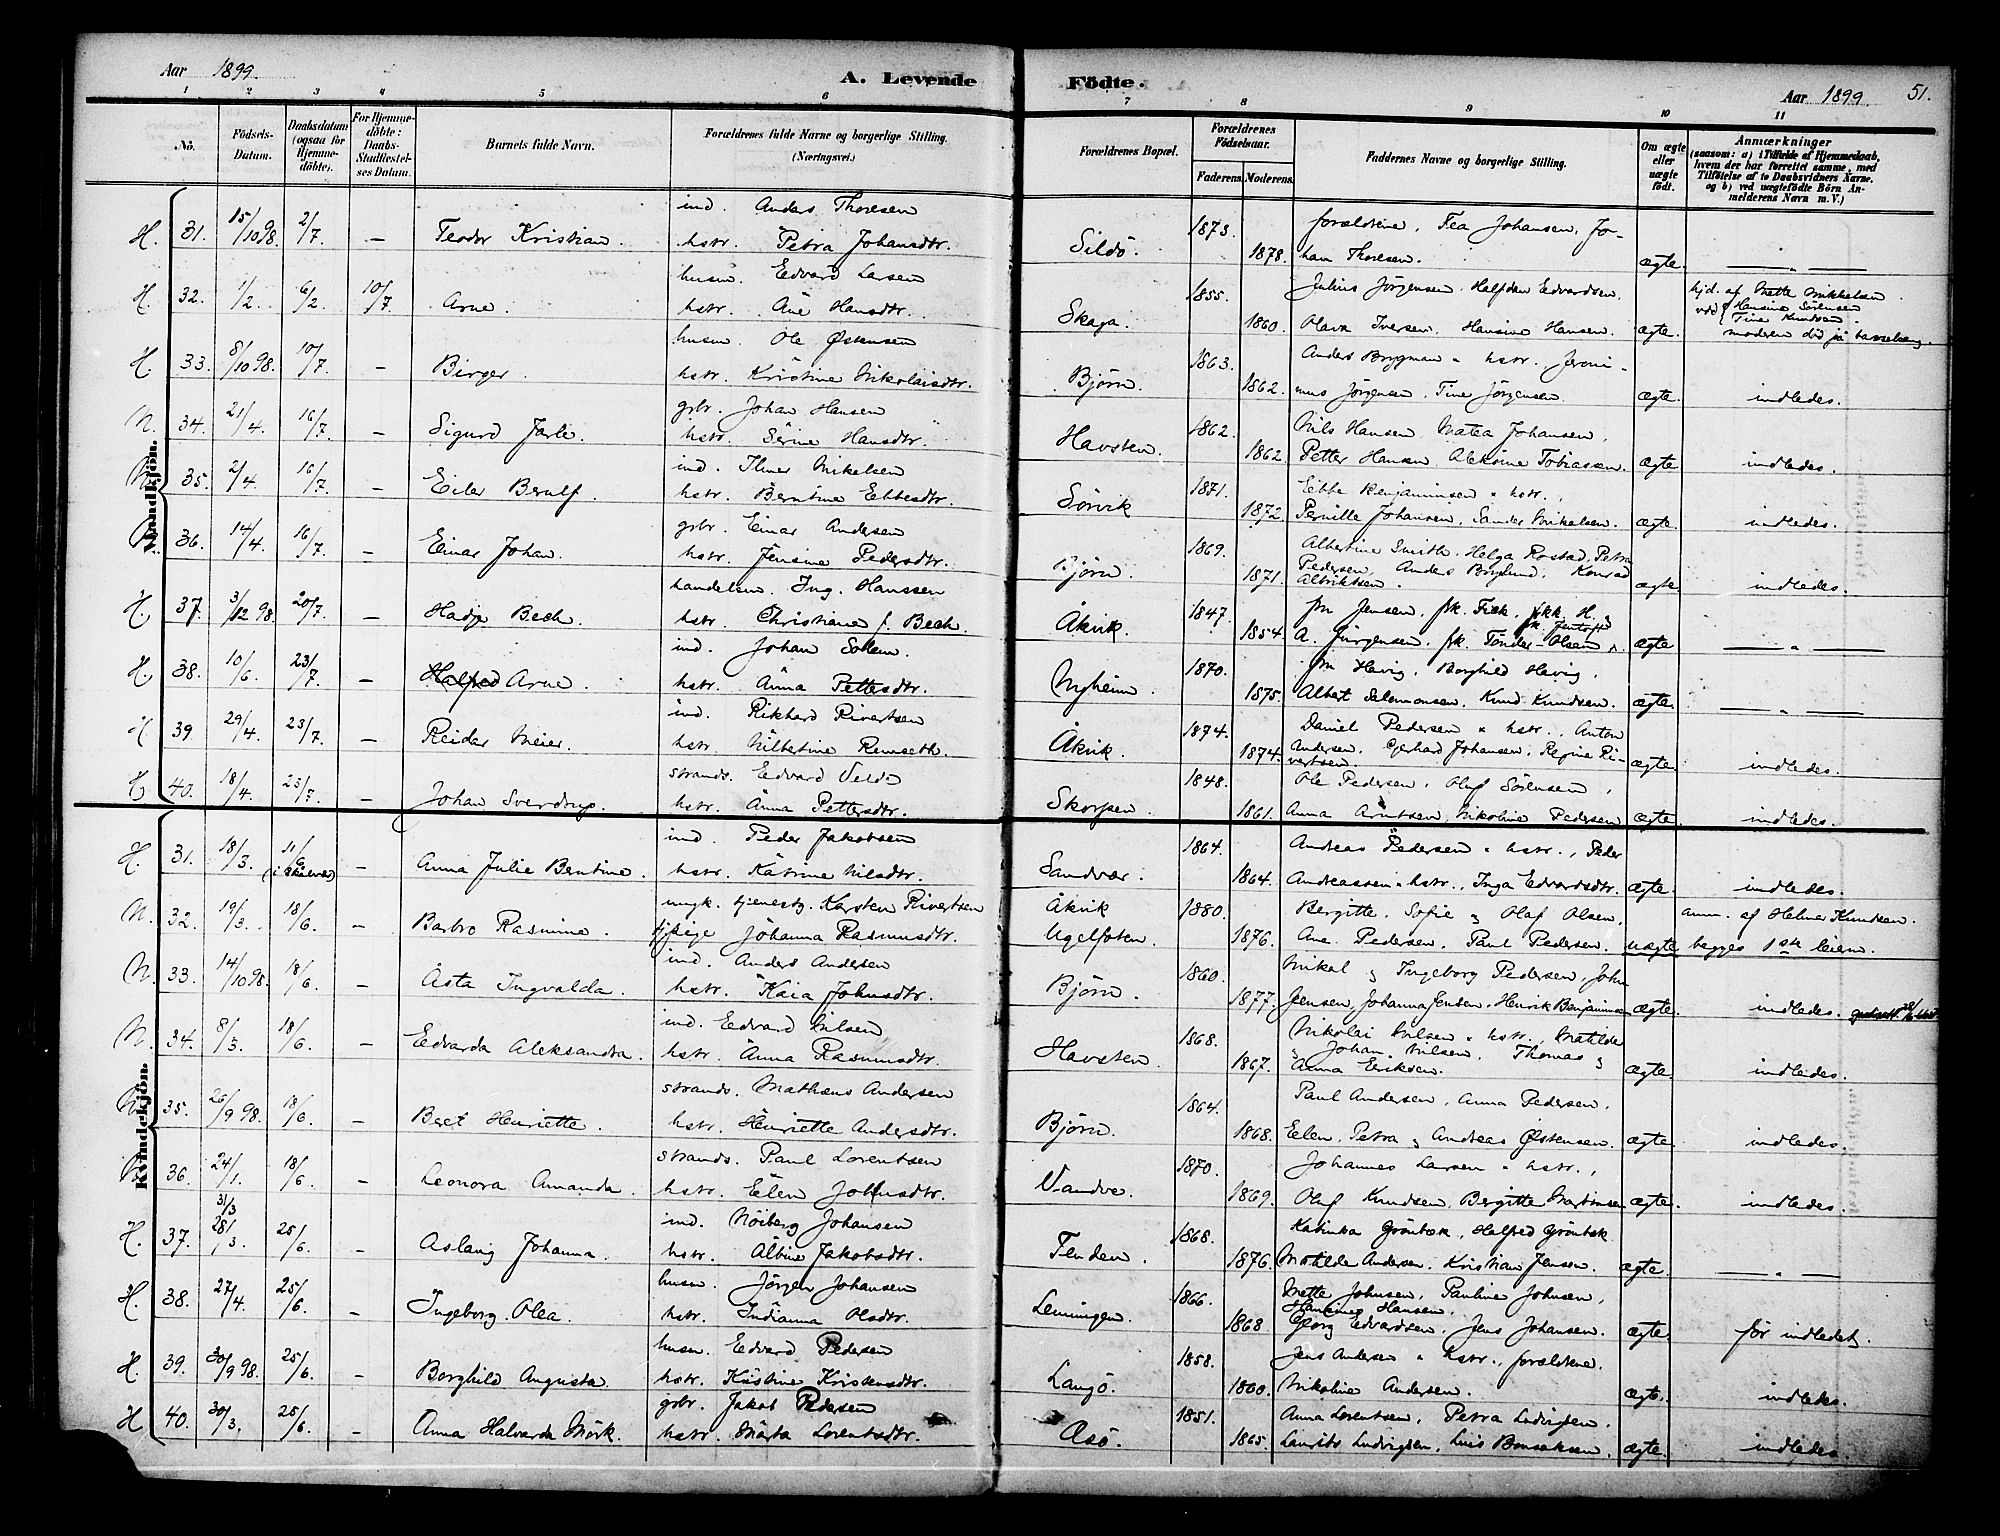 Aar 1899. A. Levende Födte. Aar 1899. 51.
1 2 3 4 5 6 7 8 9 10 11
No. Födsels-Datum. Daabsdatum (ogsaa for Hjemme-döbte). For Hjemme-döbte: Daabs-Stadfæstel-ses Datum. Barnets fulde Navn. Forældrenes fulde Navne og borgerlige Stilling. (Næringsvei.) Forældrenes Bopæl. Forældrenes Födselsaar. Faderens. Moderens. Faddernes Navne og borgerlige Stilling. Om ægte eller uægte født. Anmærkninger (saasom: a) i Tilfælde af Hjemmedaab, hvem der har forrettet samme, med Tilföielse af to Daabsvidners Navne, og b) ved uægtefödte Börn Anmelderens Navn m. V.)
Mandkjön.
ind. Anders Thoresen 1873. forældrene, Tea Johansen, Jo-
H. 31. 15/10 98. 2/7 – Teodor Kristian. hstr. Petra Johansdtr. Sildö. 1878. han Thoresen. ægte. — „ —
husm. Edvard Larsen 1855. Julius Jörgensen. Halfdan Edvardsen, hjd. af Mette Mikkelsen
H. 32. 1/2 6/2 10/7 Arne hstr. Ane Hansdtr. Skaga. 1860. Olava Iversen. Hansine Hansen. ægte. vid. Hansine Sörensen Tine Knudsen. moderen död på barselseng.
husm. Ole Østensen 1863. Anders Brygman „ hstr. Jeroni-
H. 33. 8/10 98. 10/7 – Birger. hstr. Kristine Nikolaisdtr. Björn. 1862. mus Jörgensen, Tine Jörgensen. ægte. indledes.
gbr. Johan Hansen 1862. Nils Hansen. Matea Johansen,
N. 34. 21/4. 16/7 – Sigurd Jarle. hstr. Serine Hansdtr. Havsten. 1862. Petter Hansen. Aleksine Tobiassen. ægte indledes.
ind. Ilmer Mikelsen 1871. Ebbe Benjaminsen „ hstr.,
N. 35. 2/4 16/7 – Eiler Berulf. hstr. Berntine Ebbesdtr. Sörvik 1872. Pernille Johansen. Sander Mikelsen. ægte. indledes.
gbr. Einar Andersen 1869. Albertine Smith. Helga Rostad, Petra
36. 14/4. 16/7 – Einar Johan. hstr. Jensine Pedersdtr. Björn. 1871. Pedersen, Anders Borglund. Konrad Albriktsen. ægte. indledes.
handelsm. Ing. Hanssen 1847. fru Jensen, frk. Fick, frkk. H. &
H. 37. 3/12 98 20/7 – Hadje Bech. hstr. Christiane f. Bech. Åkvik. 1854. A. Jürgensen. fk. Tönder-Olsen, fk. Jentoft ægte — „ —
ind. Johan Solem. 1870. fru Havig, Borghild Havig,
H. 38. 10/6. 23/7 – Halfred Arne. hstr. Anna Pettersdtr. Nyheim. 1875. Albert Salomonsen. Knud Knudsen. ægte. — „ —
ind. Rikhard Rivertsen 1874. Daniel Pedersen „ hstr., Anton
H 39. 29/4. 23/7. – Reidar Meier. hstr. Nilbertine Remseth. Åkvik. 1874. Andersen. Gerhard Johansen, Regine Ri-vertsen. ægte. indledes.
strands. Edvard Velde 1848. Ole Pedersen, Oluf Sörensen,
H 40. 18/4. 23/7 – Johan Sverdrup. hstr. Anna Pettersdtr. Skorpen. 1861. Anna Arntsen, Nikoline Pedersen ægte. indledes.
Kvindekjön.
ind. Peder Jakobsen 1864. Andreas Pedersen „ hstr., Peder
H. 31. 18/3. 11/6 – Anna Julie Berntine. hstr. Katrine Nilsdtr. Sandvær. 1864. Andreassen „ hstr., Inga Edvardsdtr. ægte. indledes.
ungk. tjenestg. Karsten Rivertsen Åkvik 1880. Bergitte. Sofie & Olaf Olsen, anm. af Helmer Knudsen.
N. 32. 19/3. 18/6. – Barbro Rasmine. tjpige Johanna Rasmusdtr. Ugelfoten. 1876. Ane Pedersen. Paul Pedersen. uægte begges 1ste leierm.
ind. Anders Andersen 1860. Mikal & Ingeborg Pedersen, John
N. 33. 14/10 98. 18/6. – Asta Ingvalda. hstr. Kaia Johnsdtr. Björn. 1877. Jensen, Johanna Jensen. Henrik Benjaminsen ægte. indledes.
ind. Edvard Nilsen 1868. Nikolai Nilsen „ hstr., Matilde
N. 34. 8/3. 18/6. – Edvarda Aleksandra. hstr. Anna Rasmusdtr. Havsten. 1867. & Johan Nilsen. Thomas & Anna Eriksen. ægte. indledes.
strands. Mathæus Andersen 1864. Paul Andersen, Anna Pedersen,
N. 35. 26/9 98. 18/6. – Beret Henriette. hstr. Henriette Andersdtr. Björn. 1868. Elen, Petra & Andreas Østensen. ægte. indledes.
strands. Paul Lorentsen 1870. Johannes Larsen „ hstr.,
36. 24/1. 18/6. – Leonora Amanda. hstr. Elen Johnsdtr. Vandve. 1869. Oluf Knudsen, Bergitte Martinsen ægte. indledes.
31/3 ind. Nöiberg Johansen 1868. Katinka Grönbæk, Halfred Grönbæk
H. 37. 28/3. 25/6. – Aslaug Johanna. hstr. Albine Jakobsdtr. Tenden. 1876. Matilde Andersen. Kristian Jensen. ægte. — „ —
husm. Jörgen Johansen 1866. Mette Johnsen, Pauline Johnsen,
H. 38. 27/4. 25/6. – Ingeborg Olea. hstr. Indianna Olsdtr. Lenningen. 1868 Hansine Hansen. Georg Edvardsen, Jens Johansen. ægte. för indledet.
husm. Edvard Pedersen 1858. Jens Andersen „ hstr., forældrene.
H. 39. 30/9 98. 25/6. – Borghild Augusta. hstr. Kristine Kristensdtr. Langö. 1860. Nikoline Andersen. ægte. indledes.
gbr. Jakob Pedersen 1851. Anna Lorentsen, Petra Ludvigsen,
H 40. 30/3. 25/6. – Anna Halvarda Mörk. hstr. Marta Lorentsdtr. Åsö. 1865. Laurits Ludvigsen, Luis Bonsaksen. ægte. indledes.